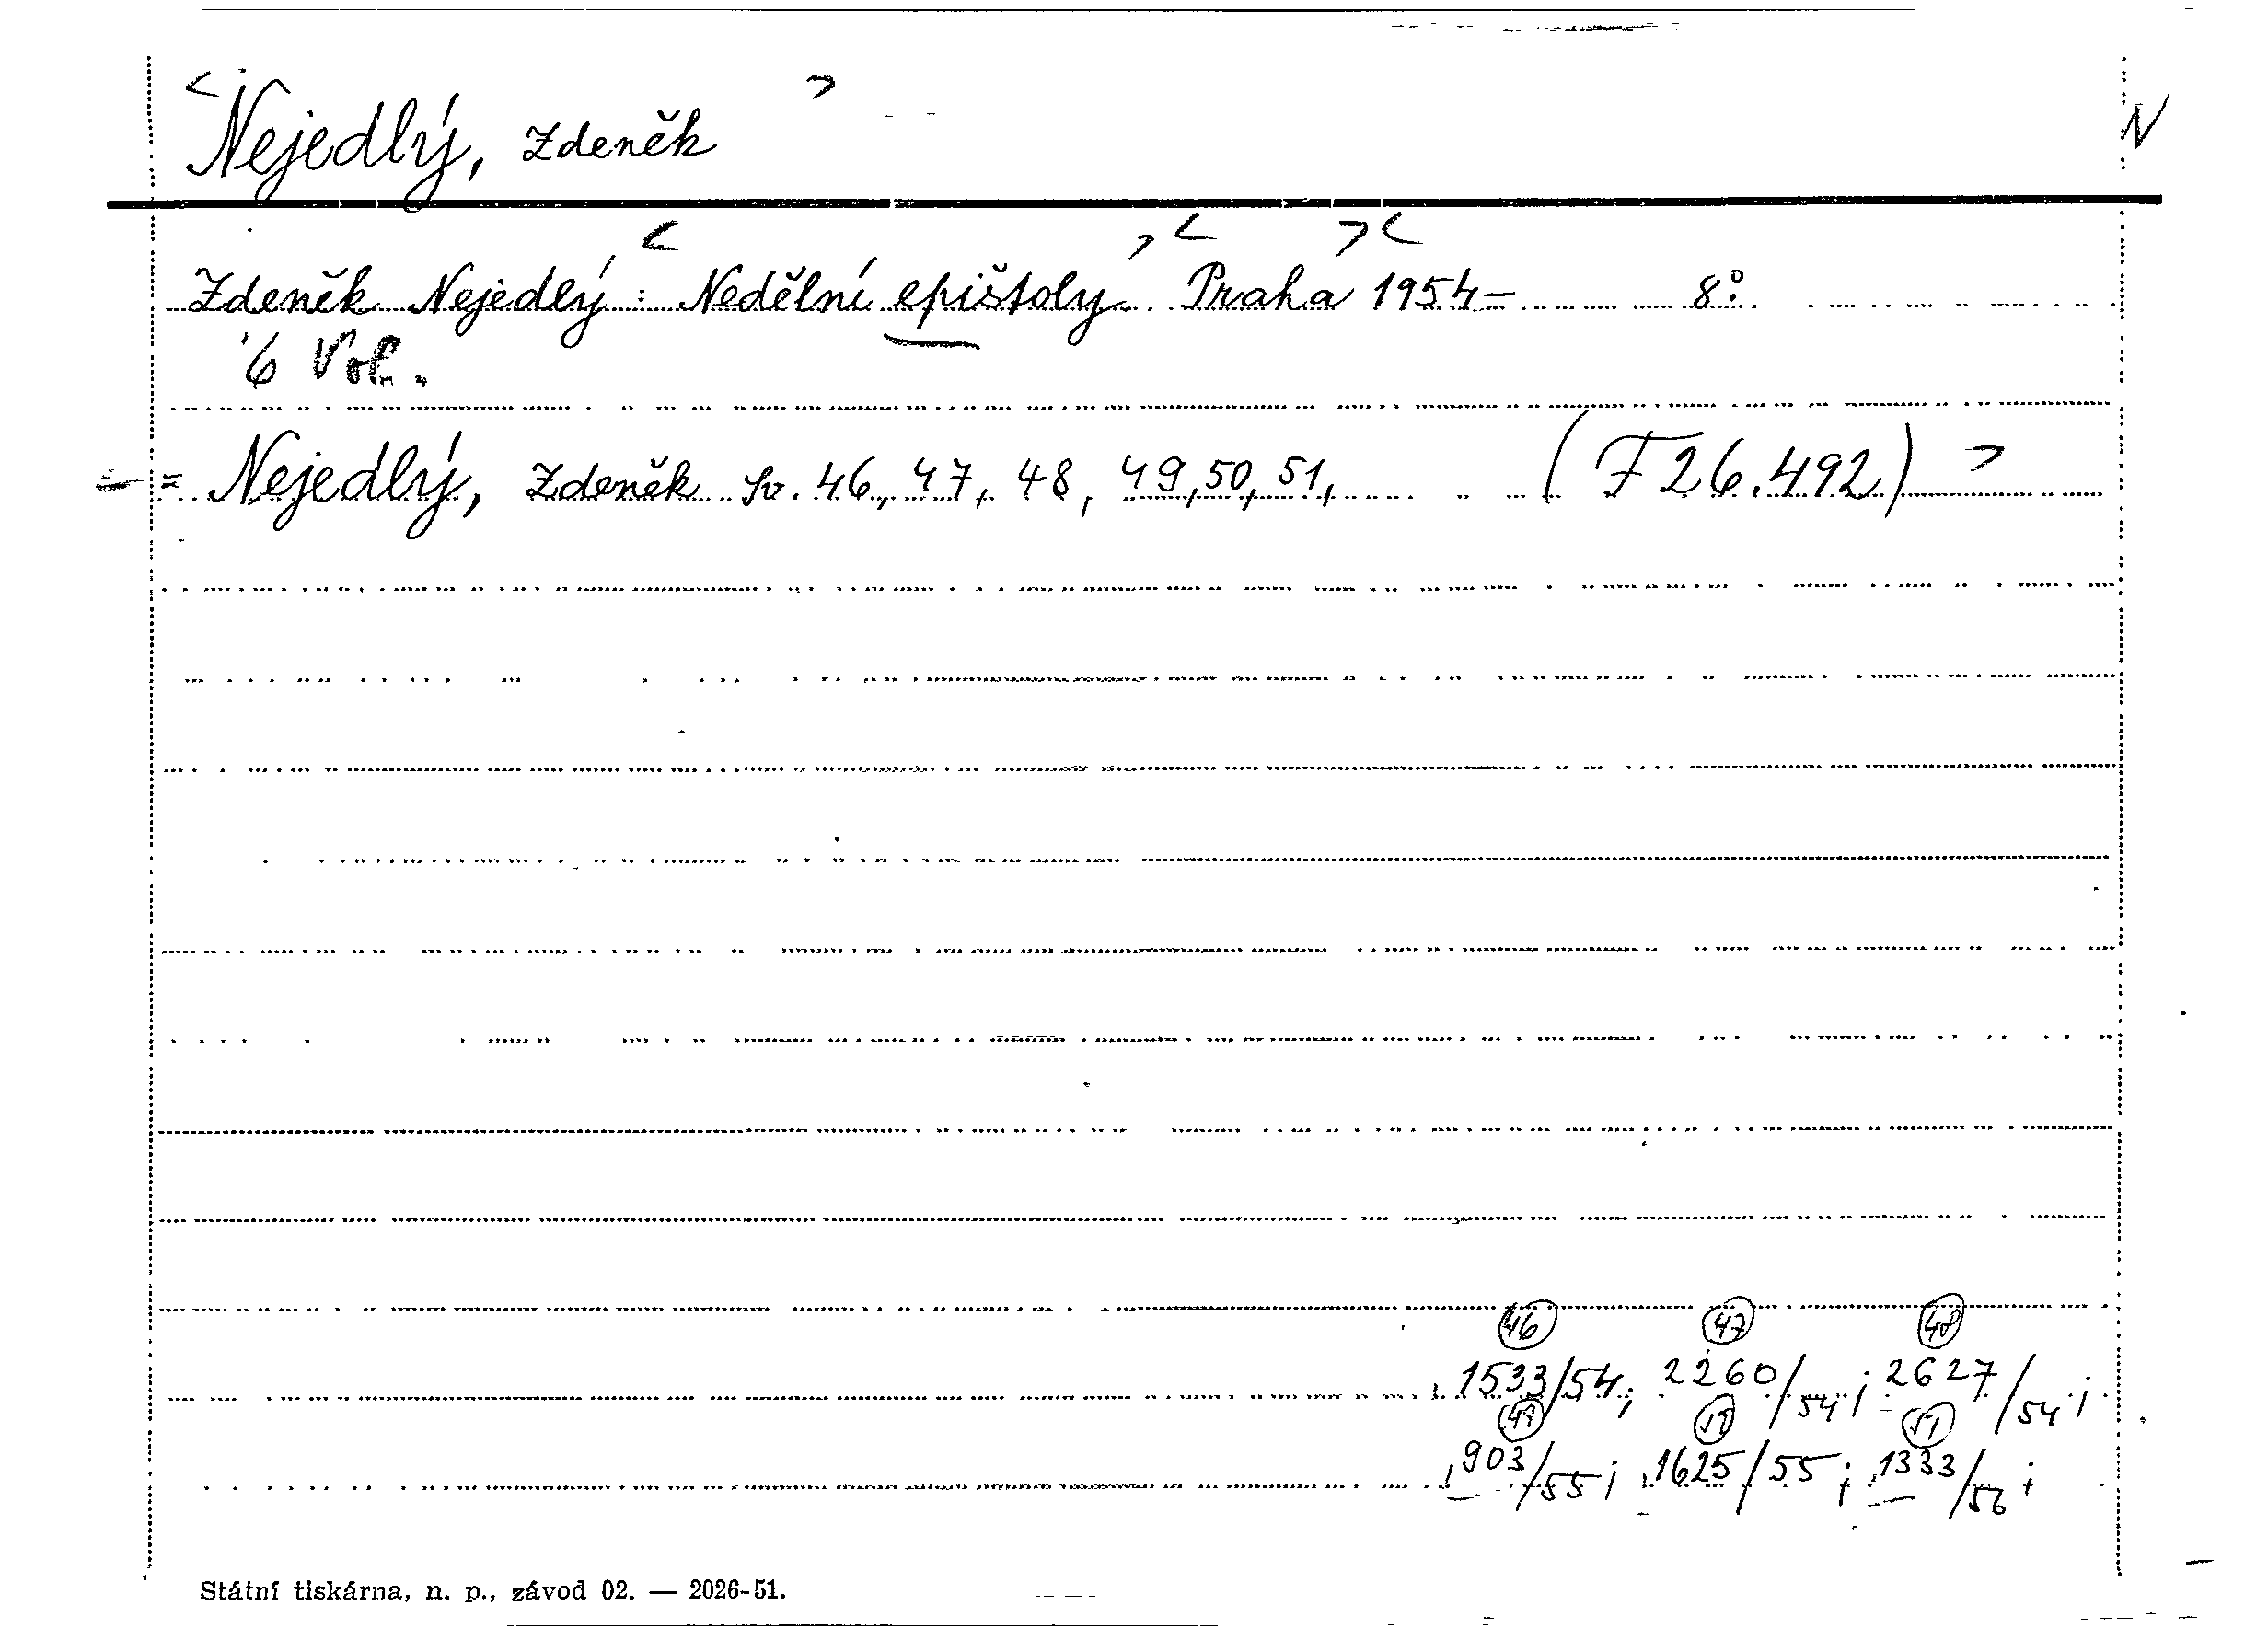 < Nejedlý, Zdeněk > N
Zdeněk Nejedlý: < Nedělní epištoly > < Praha > < 1954– 8°.
6 Vol.
= Nejedlý, Zdeněk Sv. 46, 47, 48, 49, 50, 51, (F 26.492) >
46 47 48
1533/54; 2260/54; 2627/54;
49 50 51
903/55; 1625/55; 1333/56;
Státní tiskárna, n. p., závod 02. — 2026-51.